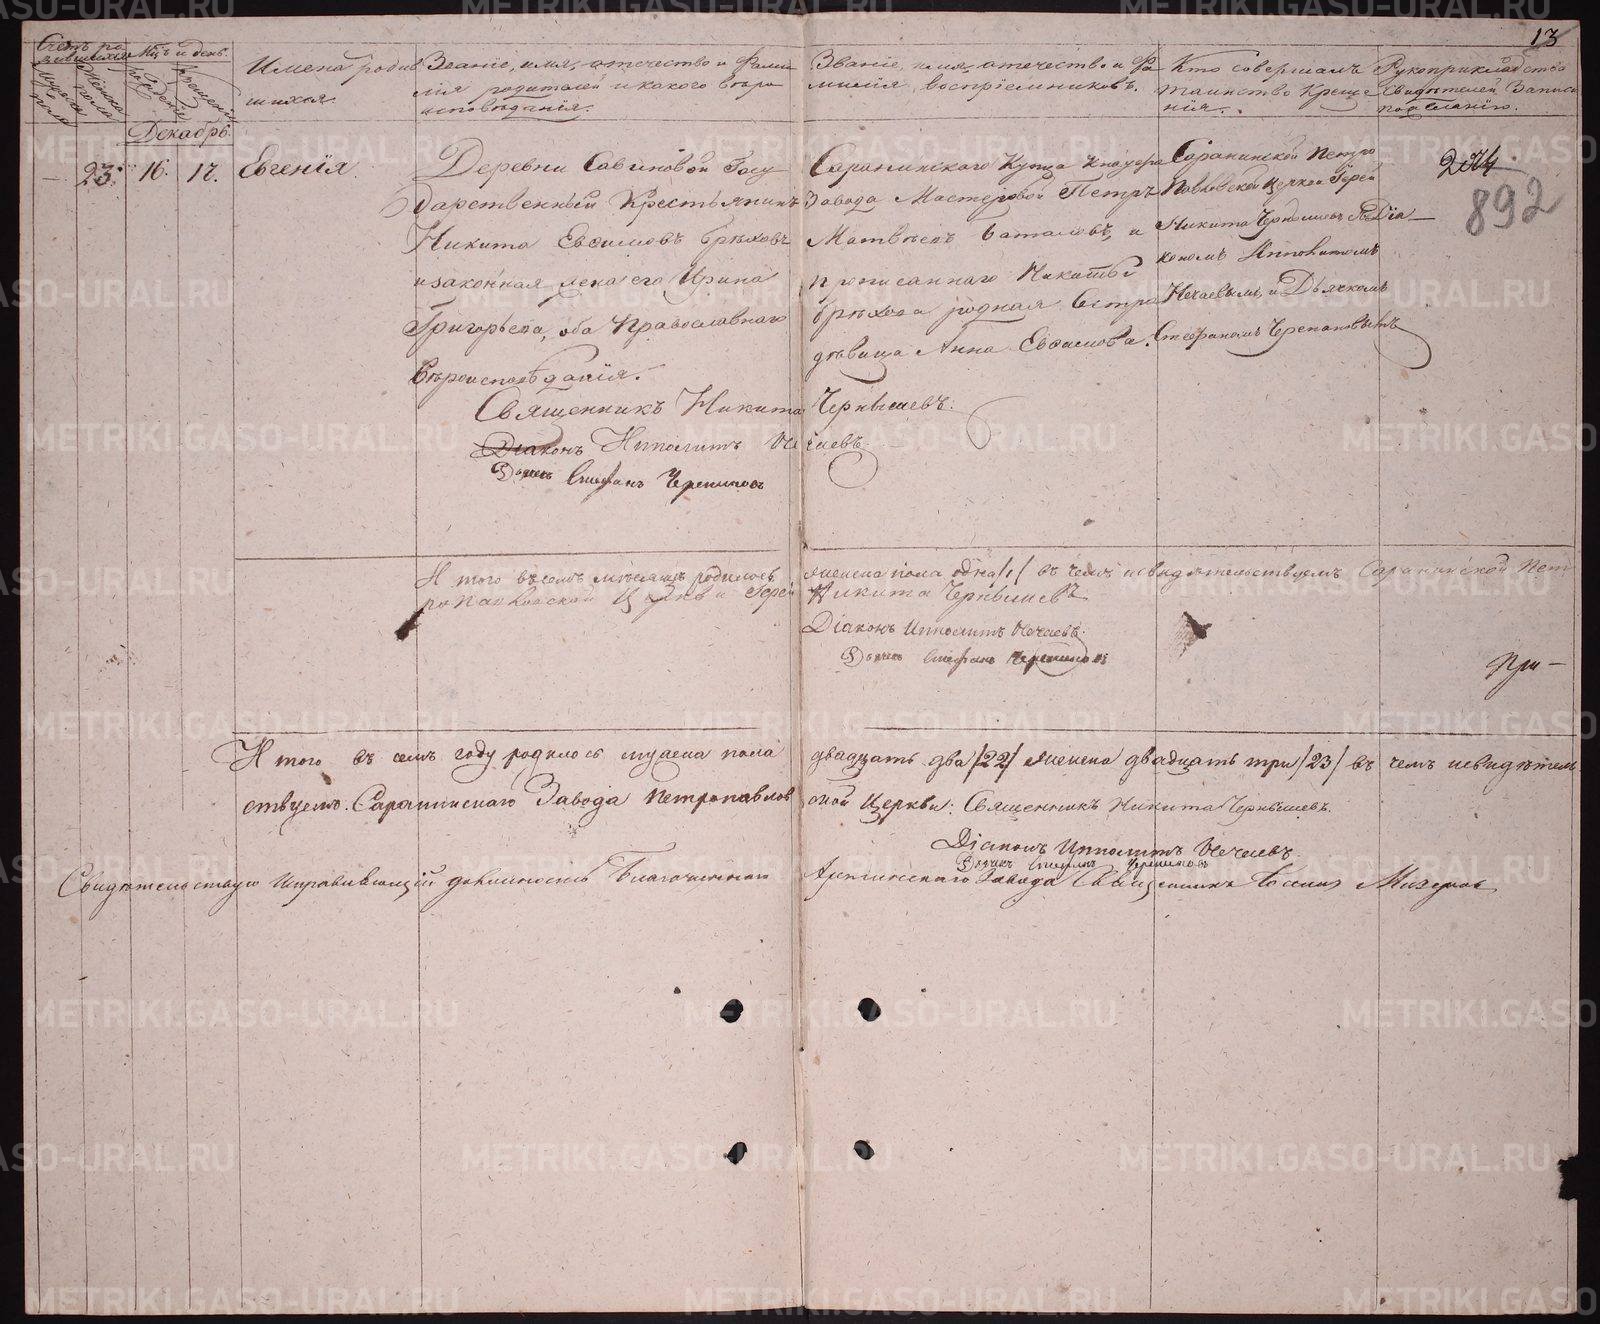 13
Счетъ родившихся
Мѣсяцъ и день.
Имена родив
шихся.
Званіе, имя, отечество и Фами
лія родителей и какого вѣро
исповѣданія.
Званіе, имя, отечество и Фа
милія воспріемниковъ.
Кто совершалъ
таинство Креще
нія.
Рукоприкладство
Свидѣтелей Записи
по желанію.
Мужеска пола
Женска пола
рожденіе
крещеніе
Декабрь.
— 23. 16. 17. Евгенія.
Деревни Савиновой Госу
дарственный Крестьянинъ
Никита Евѳимовъ Брюховъ
и законная жена его Ирина
Григорьева, оба Православнаго
Вѣроисповѣданія.
Саранинскаго Купца Кнауфа
Завода Мастеровой Петръ
Матвѣевъ Баталовъ, и
прописаннаго Никиты
Брюхова родная Сестра
дѣвица Анна Евѳимова.
Саранинской Петро
Павловской Церкви Іерей
Никита Чернышевъ съ Діа—
кономъ Ипполитомъ
Нечаевымъ, и Дьячкомъ
Стефаномъ Черепановымъ
204
892
Священникъ Никита Чернышевъ.
Діаконъ Ипполитъ Нечаевъ.
Дьячекъ Стефанъ Черепановъ
И того въ семъ мѣсяцѣ родилось женска пола одна /1/ въ чемъ и свидѣтельствуемъ Саранинской Пет
ропавловской Церкви Іерей Никита Чернышевъ
Діаконъ Ипполитъ Нечаевъ.
Дьячекъ Стефанъ Черепановъ
При—
И того въ семъ году родилось мужеска пола двадцать два /22/ женска двадцать три /23/ въ чемъ и свидѣтель
ствуемъ. Саранинскаго Завода Петропавлов ской Церкви: Священникъ Никита Чернышевъ.
Діаконъ Ипполитъ Нечаевъ.
Дьячекъ Стефанъ Черепановъ
Свидѣтельствую Исправляющій должность Благочиннаго Артинскаго Завода Священникъ
METRIKI.GASO-URAL.RU